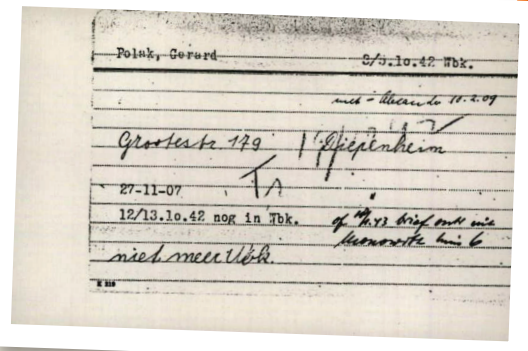 Polak, Gerard 3/5.10.42 Wbk.
10.2.09
Grootestr 179 Diepenheim
27-11-07
12/13.10.42 nog in Wbk. op brief ontv uit
Monowitz
niet meer Wbk.